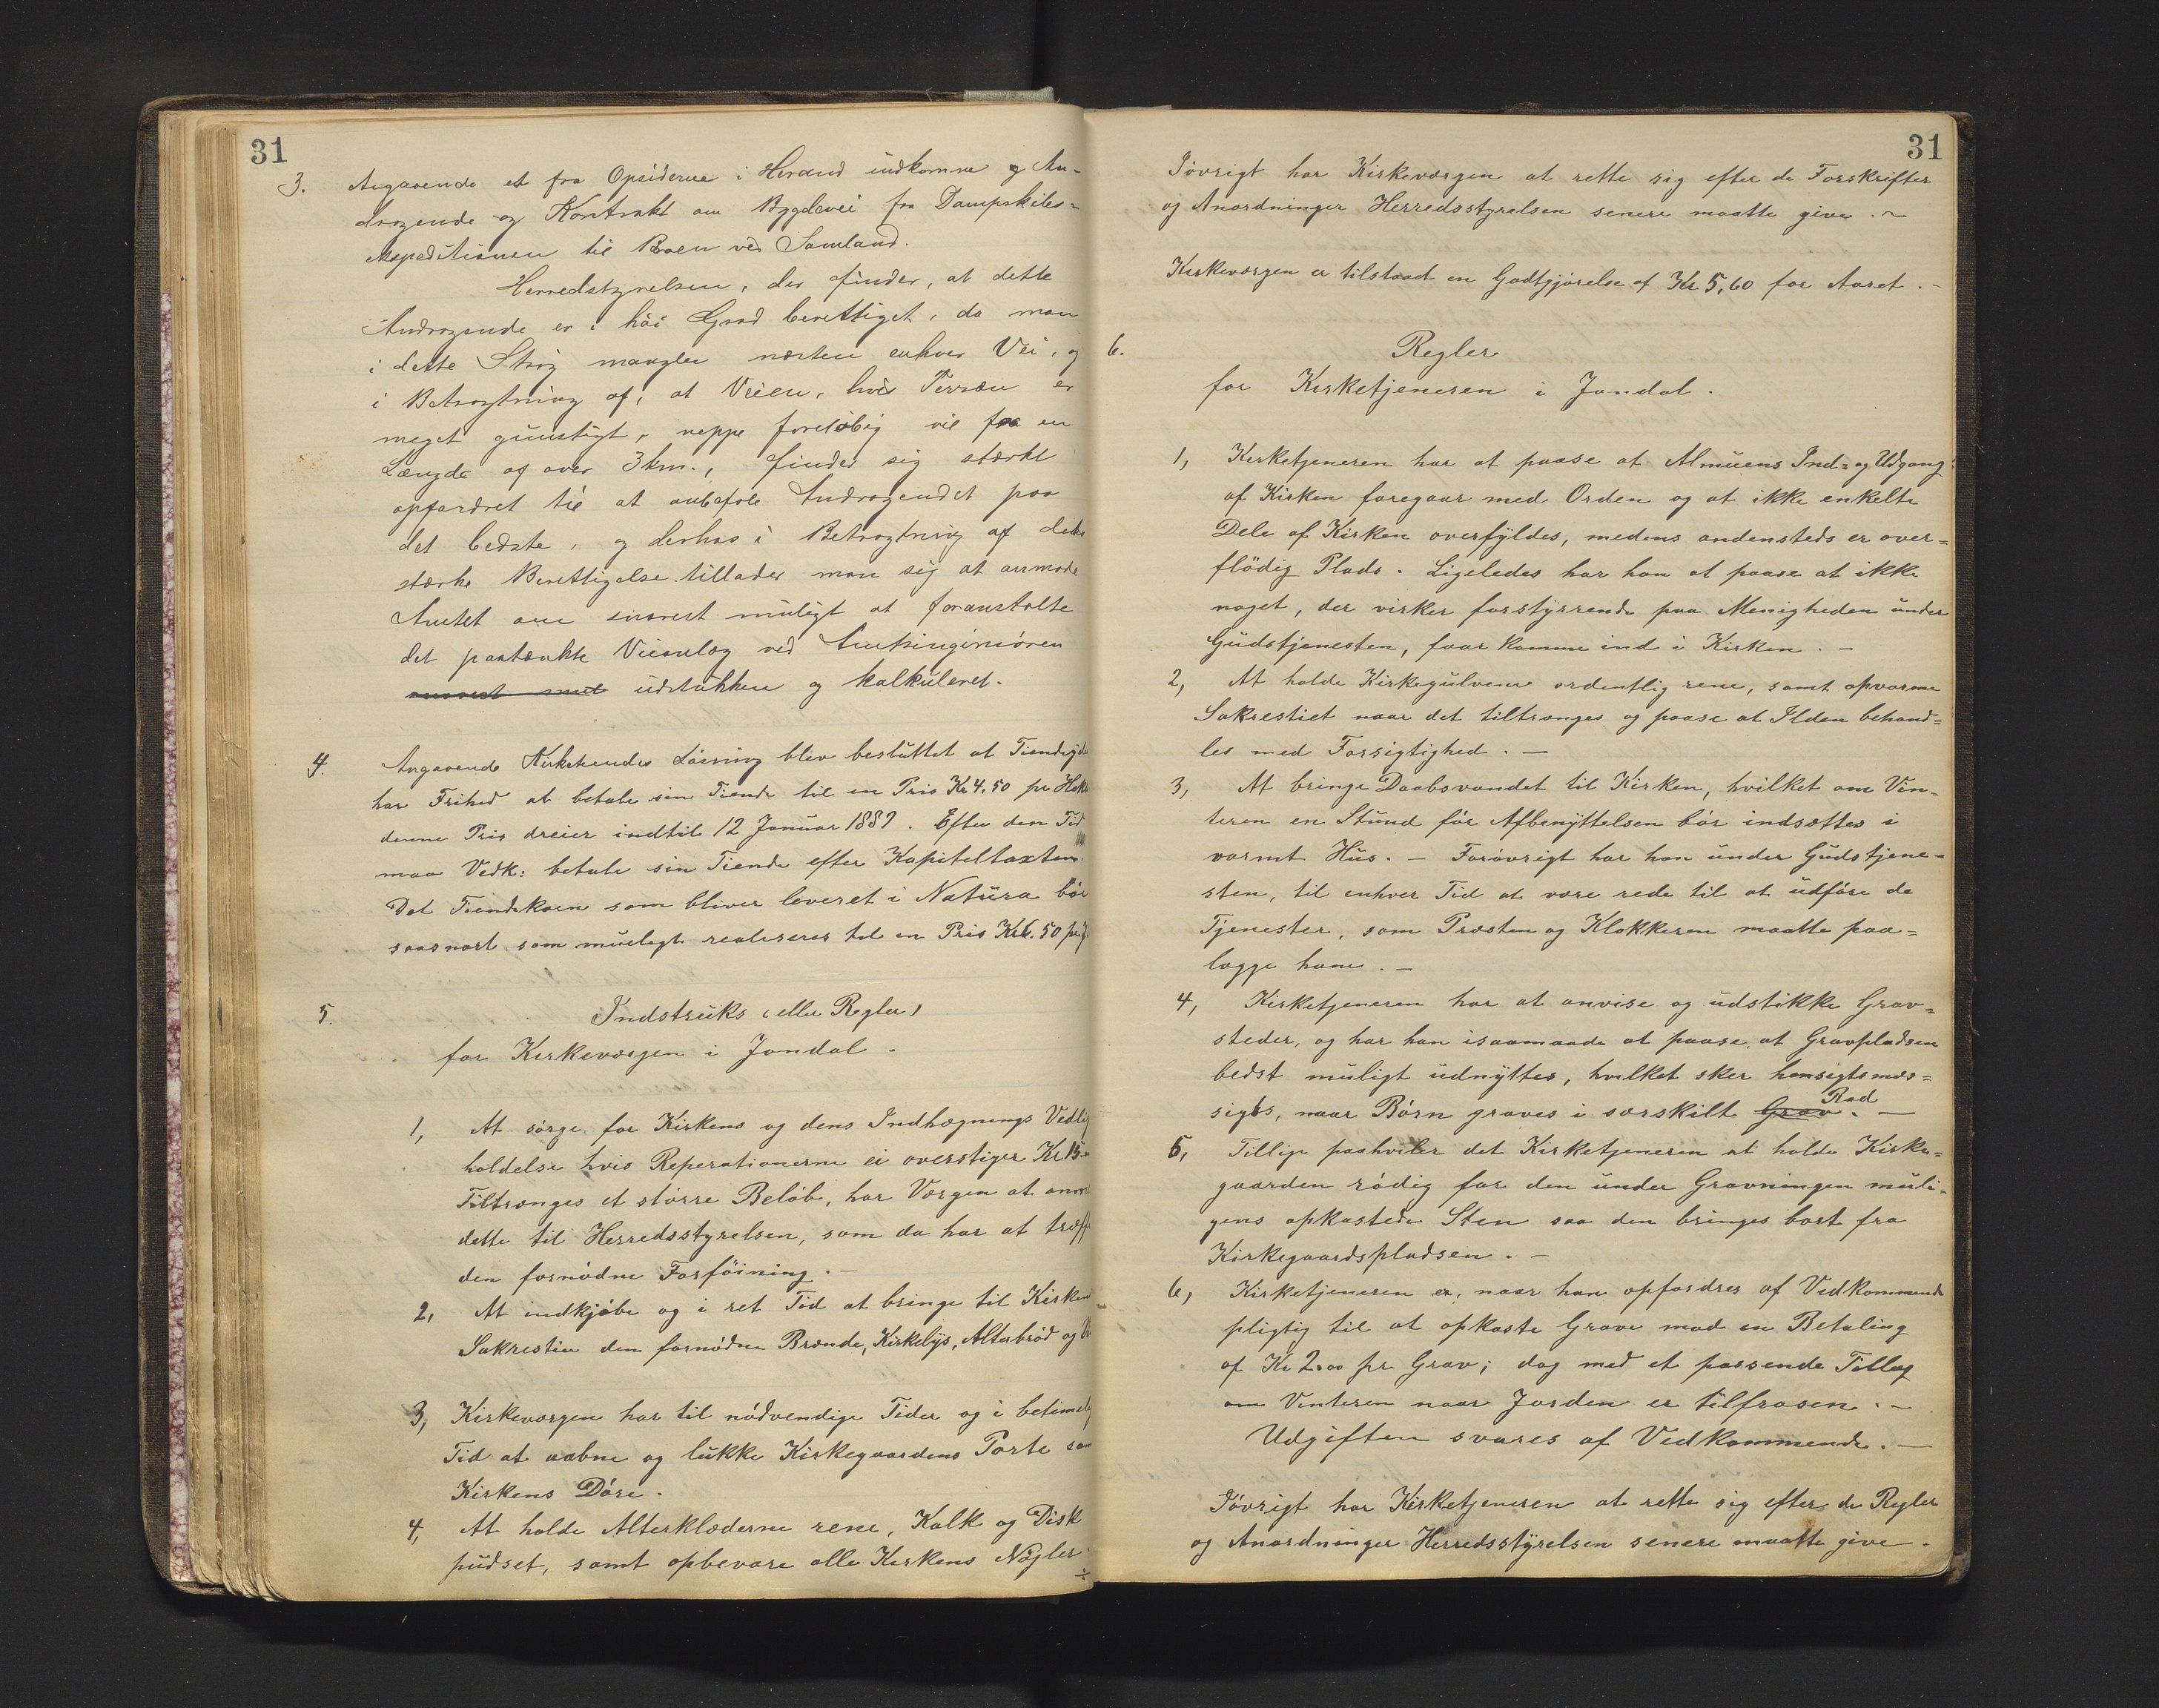 31
3. Angaaende et fra Opsiderne i Herand indkomne g An-
dragende og Kontrakt om Bygdevei fra Dampskibs-
expeditionen til Broen ved Samland.
Herredstyrelsen, der finder, at dette
Andragende er i höi Grad berettiget, da man
i dette Strög mangler næsten enhver Vei, og
i Betragtning af, at Veien, hvis Terræn er
meget gunstigt, neppe foreløbig vil faa en
Længde af over 3 km., finder sig stærkt
opfordret til at anbefale Andragendet paa
det bedste, og derhos i Betragtning af dets
stærke Berettigelse tillader man sig at anmode
Amtet om snarest muligt at foranstalte
det paatænkte Veianlæg ved Amtsingeniören
snarest mul udstukken og kalkuleret.
4. Angaaende Kirketiendes Løsning blev besluttet at Tiendeyde
har Frihed at betale sin Tiende til en Pris Kr 4.50 pr Hek
denne Pris dreier indtil 12 Januar 1887. Efter den Tid
maa Vedk: betale sin Tiende efter Kapiteltaxten.
Det Tiendekorn som bliver leveret i Natura bör
saasnart som muligt realiseres til en Pris Kr 6.50 pr
5. Indstruks (eller Regler)
for Kirkeværgen i Jondal.
1, At sörge for Kirkens og dens Indhægnings Vedlig
holdelse hvis Reperationerne ei overstiger Kr 15.
Tiltrænges et större Belöb, har Værgen at anm
dette til Herredsstyrelsen, som da har at træff
den fornödne Forföining. –
2, At indkjöbe og i ret Tid at bringe til Kirken
Sakrestiet den fornödne Brænde, Kirkelys, Alterbröd og Vi
3, Kirkeværgen har til nödvendige Tider og i betimel
Tid at aabne og lukke Kirkegaardens Porte sa
Kirkens Döre.
4, At holde Alterklæderne rene, Kalk og Disk
pudset, samt opbevare alle Kirkens Nögler.
31
Iövrigt har Kirkeværgen at rette sig efter de Forskrifter
og Anordninger Herredsstyrelsen senere maatte give. –
Kirkeværgen er tilstaaet en Godtgjörelse af Kr 5,60 for Aaret. –
6. Regler
for Kirketjeneren i Jondal.
1, Kirketjeneren har at paase at Almuens Ind- og Udgang
af Kirken foregaar med Orden og at ikke enkelte
Dele af Kirken overfyldes, medens andensteds er over-
flödig Plads. Ligeledes har han at paase at ikke
noget, der virker forstyrrende paa Menigheden under
Gudstjenesten, faar komme ind i Kirken. –
2, At holde Kirkegulvene ordentlig rene, samt opvarme
Sakrestiet naar det tiltrænges og paase at Ilden behand-
les med Forsigtighed. –
3, At bringe Daabsvandet til Kirken, hvilket om Vin-
teren en Stund för Afbenyttelsen bör indsættes i
varmt Hus. – Forövrigt har han under Gudstjene-
sten, til enhver Tid at være rede til at udföre de
Tjenester, som Præsten og Klokkeren maatte paa-
lægge ham. –
4, Kirketjeneren har at anvise og udstikke Grav-
steder, og har han isaamaade at paase, at Gravpladsen
bedst muligt udnyttes, hvilket sker hensigtsmæs-
sigts, naar Börn graves i særskilt Grav Rad. –
5, Tillige paahviler det Kirketjeneren at holde Kirke-
gaarden rödig for den under Gravningen muli-
gens opkastede Sten saa den bringes bort fra
Kirkegaardspladsen. –
6, Kirketjeneren er, naar han opfordres af Vedkommende
pligtig til at opkaste Grave mod en Betaling
af Kr 2.00 pr Grav; dog med et passende Tillæg
om Vinteren naar Jorden er tilfrosen. –
Udgiften svares af Vedkommende. –
Iövrigt har Kirketjeneren at rette sig efter de Regler
og Anordninger Herredsstyrelsen senere maatte give.